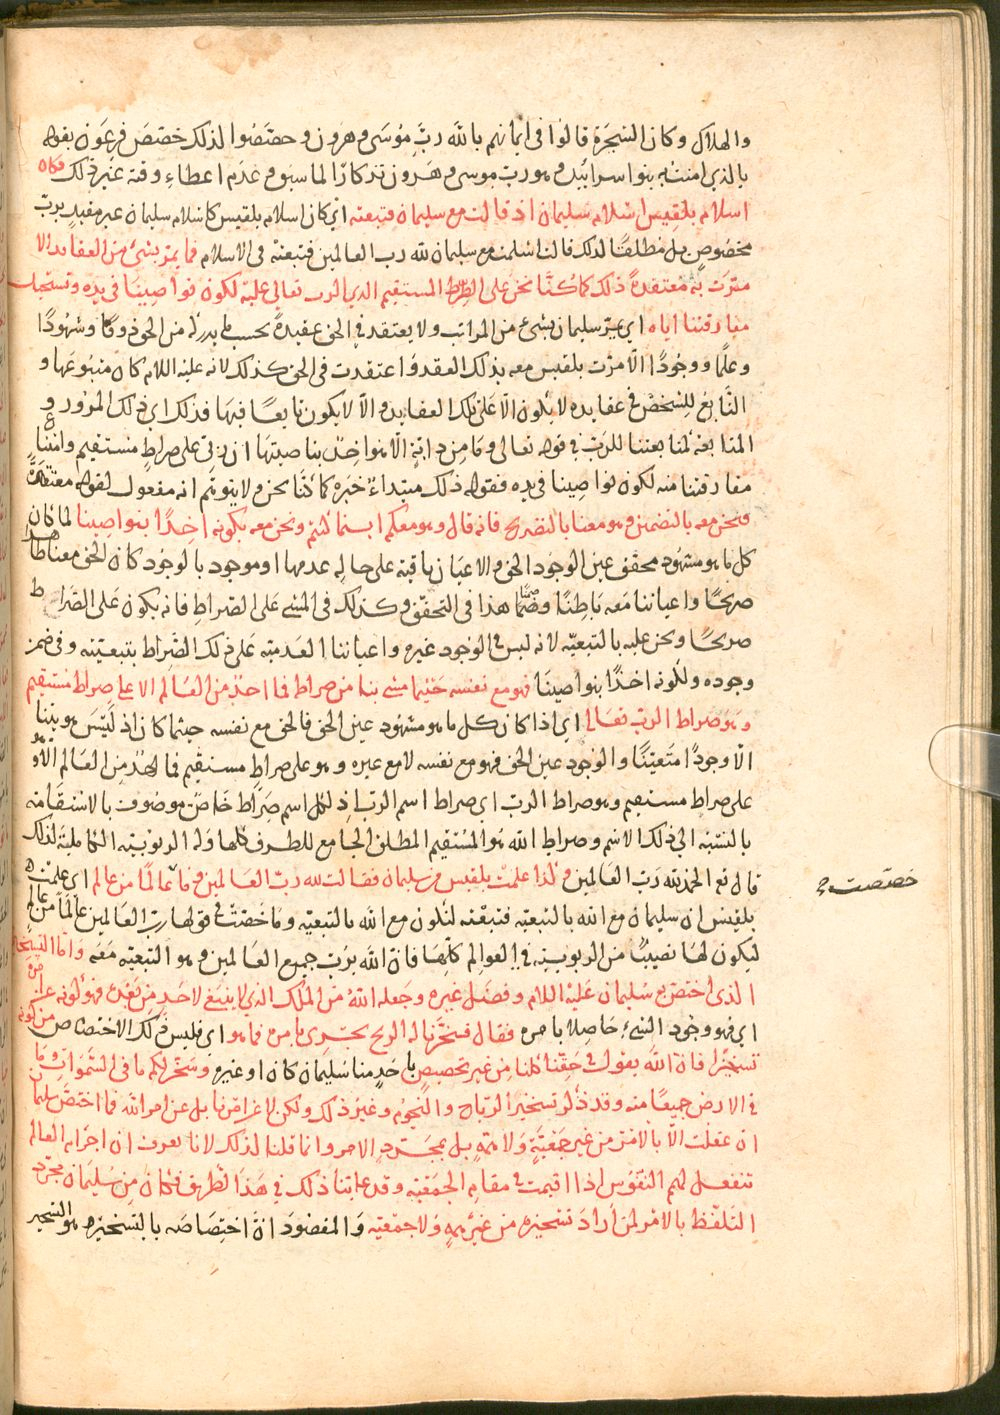 والهلاك وكان السحرة قالوا في ايمانهم بالله رب موسى وهرون وخصصوا لذلك خصص فرعون بقوله
بالذي امنت به بنوا اسرائيل وهو رب موسى وهرون تذكارا لما سبق وعدم اعطاء وقته غير ذلك فكان
اسلام بلقيس اسلام سليمان اذ قالت مع سليمان فتبعته اي كان اسلام بلقيس كاسلام سليمان غير مقيد برب
مخصوص بل مطلقا لذلك قالت اسلمت مع سليمان لله رب العالمين فتبعته في الاسلام فما يمر بشيء من العقايد الا
مرت به معتقدة ذلك كما كنا نحن على الصراط المستقيم الذي الرب تعالى عليه لكون نواصينا في يده وتستحيل
مفارقتنا اياه اي يمر سليمان بشيء من المراتب ولا يعتقد في الحق عقيدة بحسب ما يدركه من الحق ذوقا وشهودا
وعلما ووجودا الا مرت بلقيس معه بذلك العقد واعتقدت في الحق كذلك لانه عليه السلام كان متبوعها و
التابع للشخص في عقايده لا يكون الا على تلك العقايد والا لا يكون تابعا فيها فذلك اي ذلك المرور و
المتابعة كمتابعتنا للرب في قوله تعالى وما من دابة الا هو اخذ بناصيتها ان ربي على صراط مستقيم وامتناع
مفارقتنا منه لكون نواصينا في يده فقوله ذلك مبتداء خبره كما كنا نحن ولا يتوهم انه مفعول لقوله معتقدة
فنحن معه بالتضمين وهو معنا بالتصريح فانه قال وهو معكم اينما كنتم ونحن معه بكونه اخذا بنواصينا لما كان
كل ما هو مشهود محقق عين الوجود الحق والاعيان باقية على حالة عدمها او موجود بالوجود كان الحق معنا ظاهرا
صريحا واعياننا معه باطنا وضمنا هذا في التحقق وكذلك في المشي على الصراط فانه يكون على الصراط
صريحا ونحن عليه بالتبعية لانه ليس في الوجود غيره واعياننا العدمية على ذلك الصراط بتبعيته وفي ضمن
وجوده ولكونه اخذا بنواصينا فهو مع نفسه حيثما مشى بنا من صراط فما احد من العالم الا على صراط مستقيم
وهو صراط الرب تعالى اي اذا كان كل ما هو مشهود عين الحق فالحق مع نفسه حيثما كان اذ ليس هويتنا
الا وجودا متعينا والوجود عين الحق فهو مع نفسه لا مع غيره وهو على صراط مستقيم فما احد من العالم الا وهو
على صراط مستقيم وهو صراط الرب اي صراط اسم الرب اذ لكل اسم صراط خاص موصوف بالاستقامة
بالنسبة الى ذلك الاسم وصراط الله هو المستقيم المطلق الجامع للطرق كلها وله الربوبية الكاملة لذلك
قال تع الحمد لله رب العالمين ولذا علمت بلقيس من سليمان فقالت لله رب العالمين وما عالما من عالم اي علمت
بلقيس ان سليمان مع الله بالتبعية فتبعته لتكون مع الله بالتبعية وما خصت في قولها رب العالمين عالما من عالم
ليكون لها نصيبا من الربوبية في العوالم كلها فان الله يرب جميع العالمين وهو التبعية معه واما التسخير
الذي اختص به سليمان عليه السلام وفضل غيره وجعله الله من الملك الذي لا ينبغي لاحد من بعده فهو لكونه عن امره
اي فهو وجود الشيء حاصلا بامره فقال فسخرنا له الريح تجري بامره فما هو اي فليس ذلك الاختصاص من كونه
تسخيرا فان الله يقول في حقنا كلنا من غير تخصيص باحد منا سليمان كان او غيره وسخر لكم ما في السموات وما
في الارض جميعا منه وقد ذكر تسخير الرياح والنجوم وغير ذلك ولكن لا عن امرنا بل عن امر الله فما اختص سليمان
ان عقلت الا بالامر من غير جمعية ولا همة بل بمجرد الامر وانما قلنا ذلك لانا نعرف ان اجرام العالم
تنفعل لهمم النفوس اذا اقيمت في مقام الجمعية وقد عاينا ذلك في هذا الطريق فكان من سليمان مجرد
التلفظ بالامر لمن اراد تسخيره من غير همة ولا جمعية والمقصود ان اختصاصه بالتسخير هو التسخير
خصصت